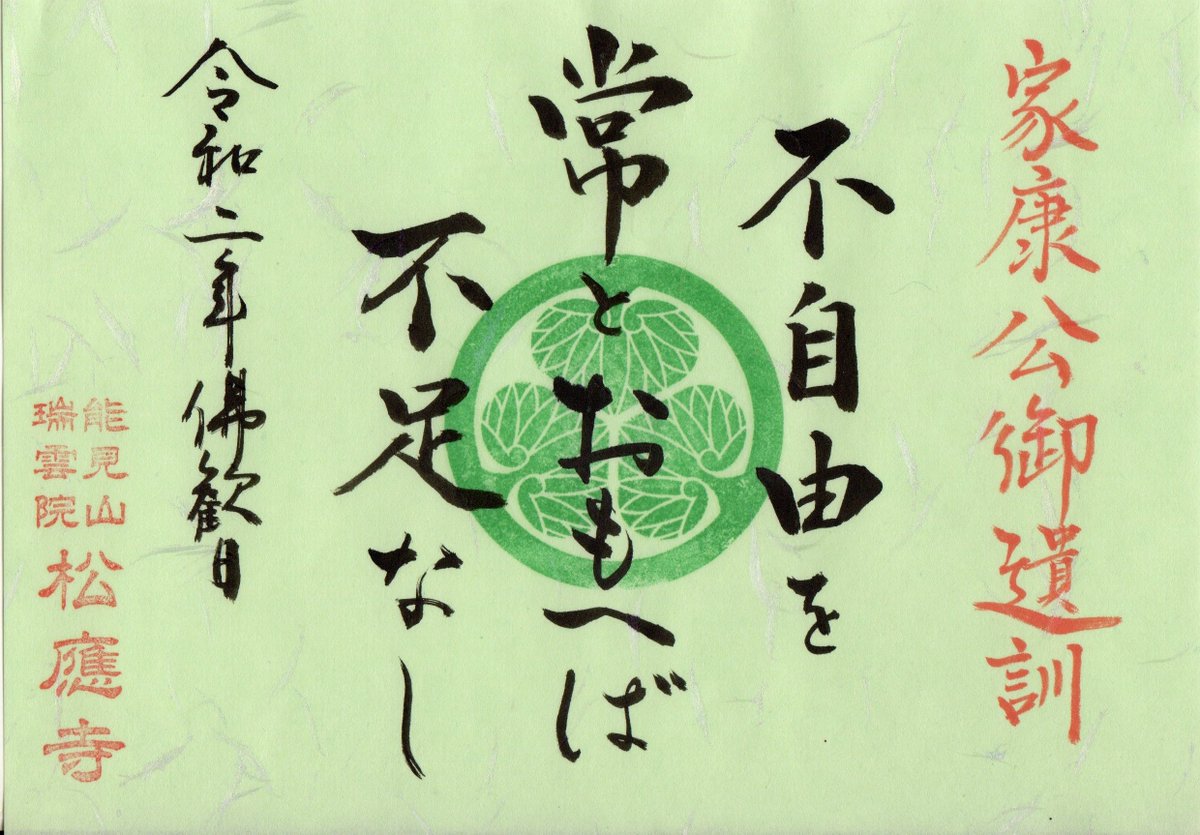 家康公御遺訓
不自由を
常とおもへば
不足なし
令和二年佛歓日
能見山
瑞雲院
松應寺